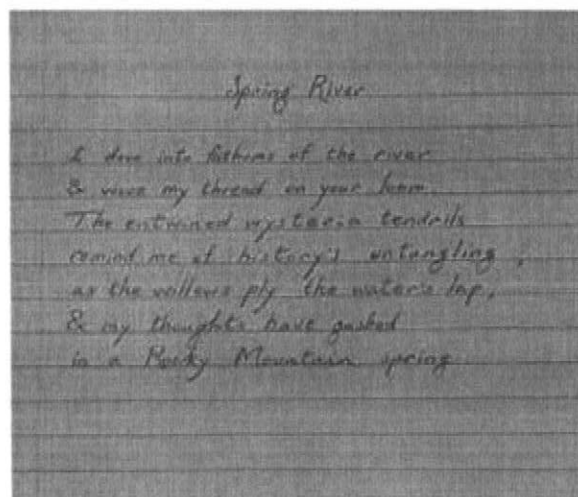 Spring River
I dove into fathoms of the river
& wove my thread on your loom.
The entwined wysteria tendrils
remind me of history's untangling,
as the willows ply the water's lap,
& my thoughts have gushed
in a Rocky Mountain spring